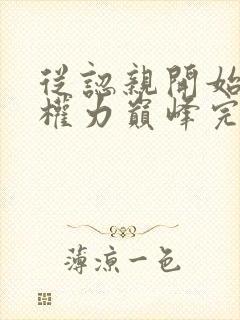 從認親開始
權力巔峰完
薄涼一色